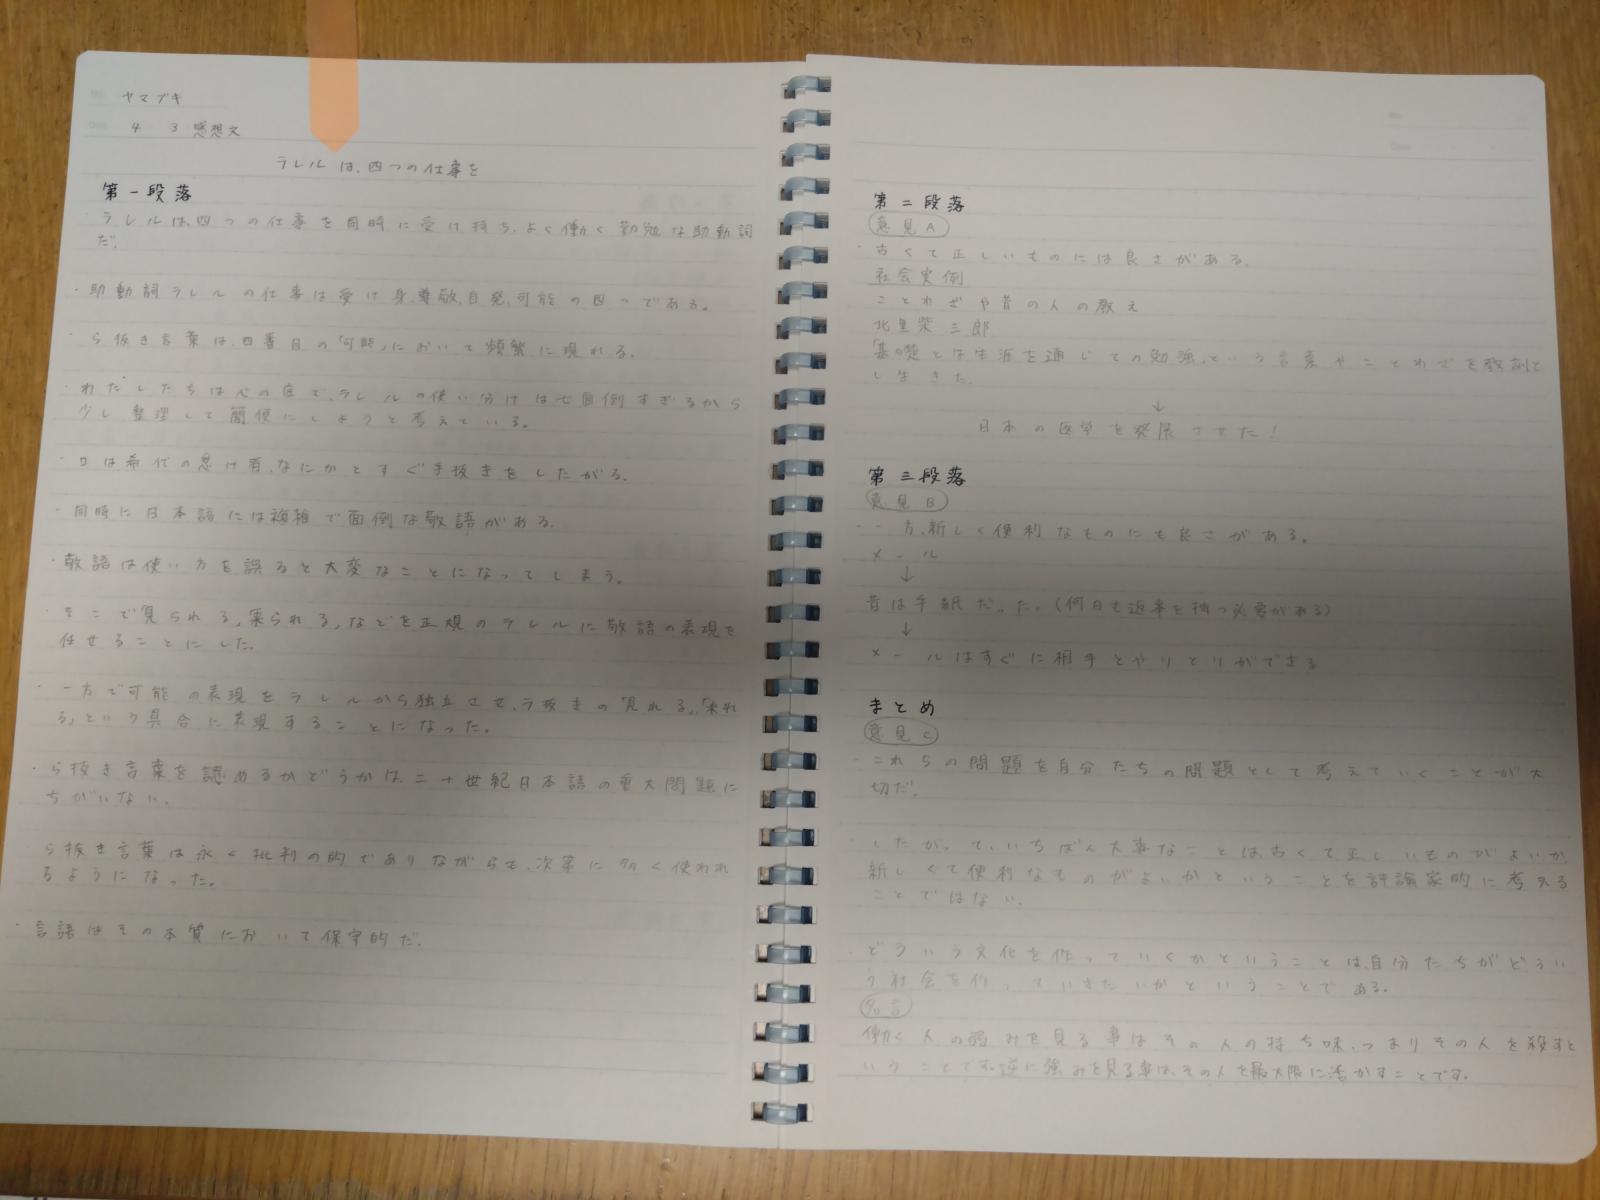 ヤマブキ
4 3 感想文
ラレルは、四つの仕事を
第一段落
・ラレルは、四つの仕事を同時に受け持ち、よく働く勤勉な助動詞
だ。
・助動詞ラレルの仕事は受け身、尊敬、自発、可能の四つである。
・ら抜き言葉は、四番目の「可能」において頻繁に現れる。
・わたしたちは心の底で、ラレルの使い分けは面倒すぎるから
少し整理して簡便にしようと考えている。
・口は希代の怠け者、なにかとすぐ手抜きをしたがる。
・同時に日本語には複雑で面倒な敬語がある。
・敬語は使い方を誤ると大変なことになってしまう。
・そこで「見られる」「来られる」などを正規のラレルに敬語の表現を
任せることにした。
・一方で可能の表現をラレルから独立させ、ラ抜きの「見れる」、「来れ
る」という具合に表現することになった。
・ら抜き言葉を認めるかどうかは、二十世紀日本語の重大問題に
ちがいない。
・ら抜き言葉は永く批判の的でありながらも、次第に多く使われ
るようになった。
・言語はその本質において保守的だ。
第二段落
意見A
・古くて正しいものには良さがある。
社会実例
ことわざや昔の人の教え
北里柴三郎
「基礎とは生涯を通じての勉強」という言葉やことわざを教訓と
し生きた。
↓
日本の医学を発展させた!
第三段落
意見B
・一方、新しく便利なものにも良さがある。
メール
↓
昔は手紙だった。(何日も返事を待つ必要がある)
↓
メールはすぐに相手とやりとりができる
まとめ
意見C
・これらの問題を自分たちの問題として考えていくことが大
切だ。
・したがって、いちばん大事なことは、古くて正しいものがよいか、
新しくて便利なものがよいかということを評論家的に考える
ことではない。
・どういう文化を作っていくかということは、自分たちがどうい
う社会を作っていきたいかということである。
名言
働く人の弱みを見る事はその人の持ち味、つまりその人を殺すと
いうことです。逆に強みを見る事は、その人を最大限に活かすことです。